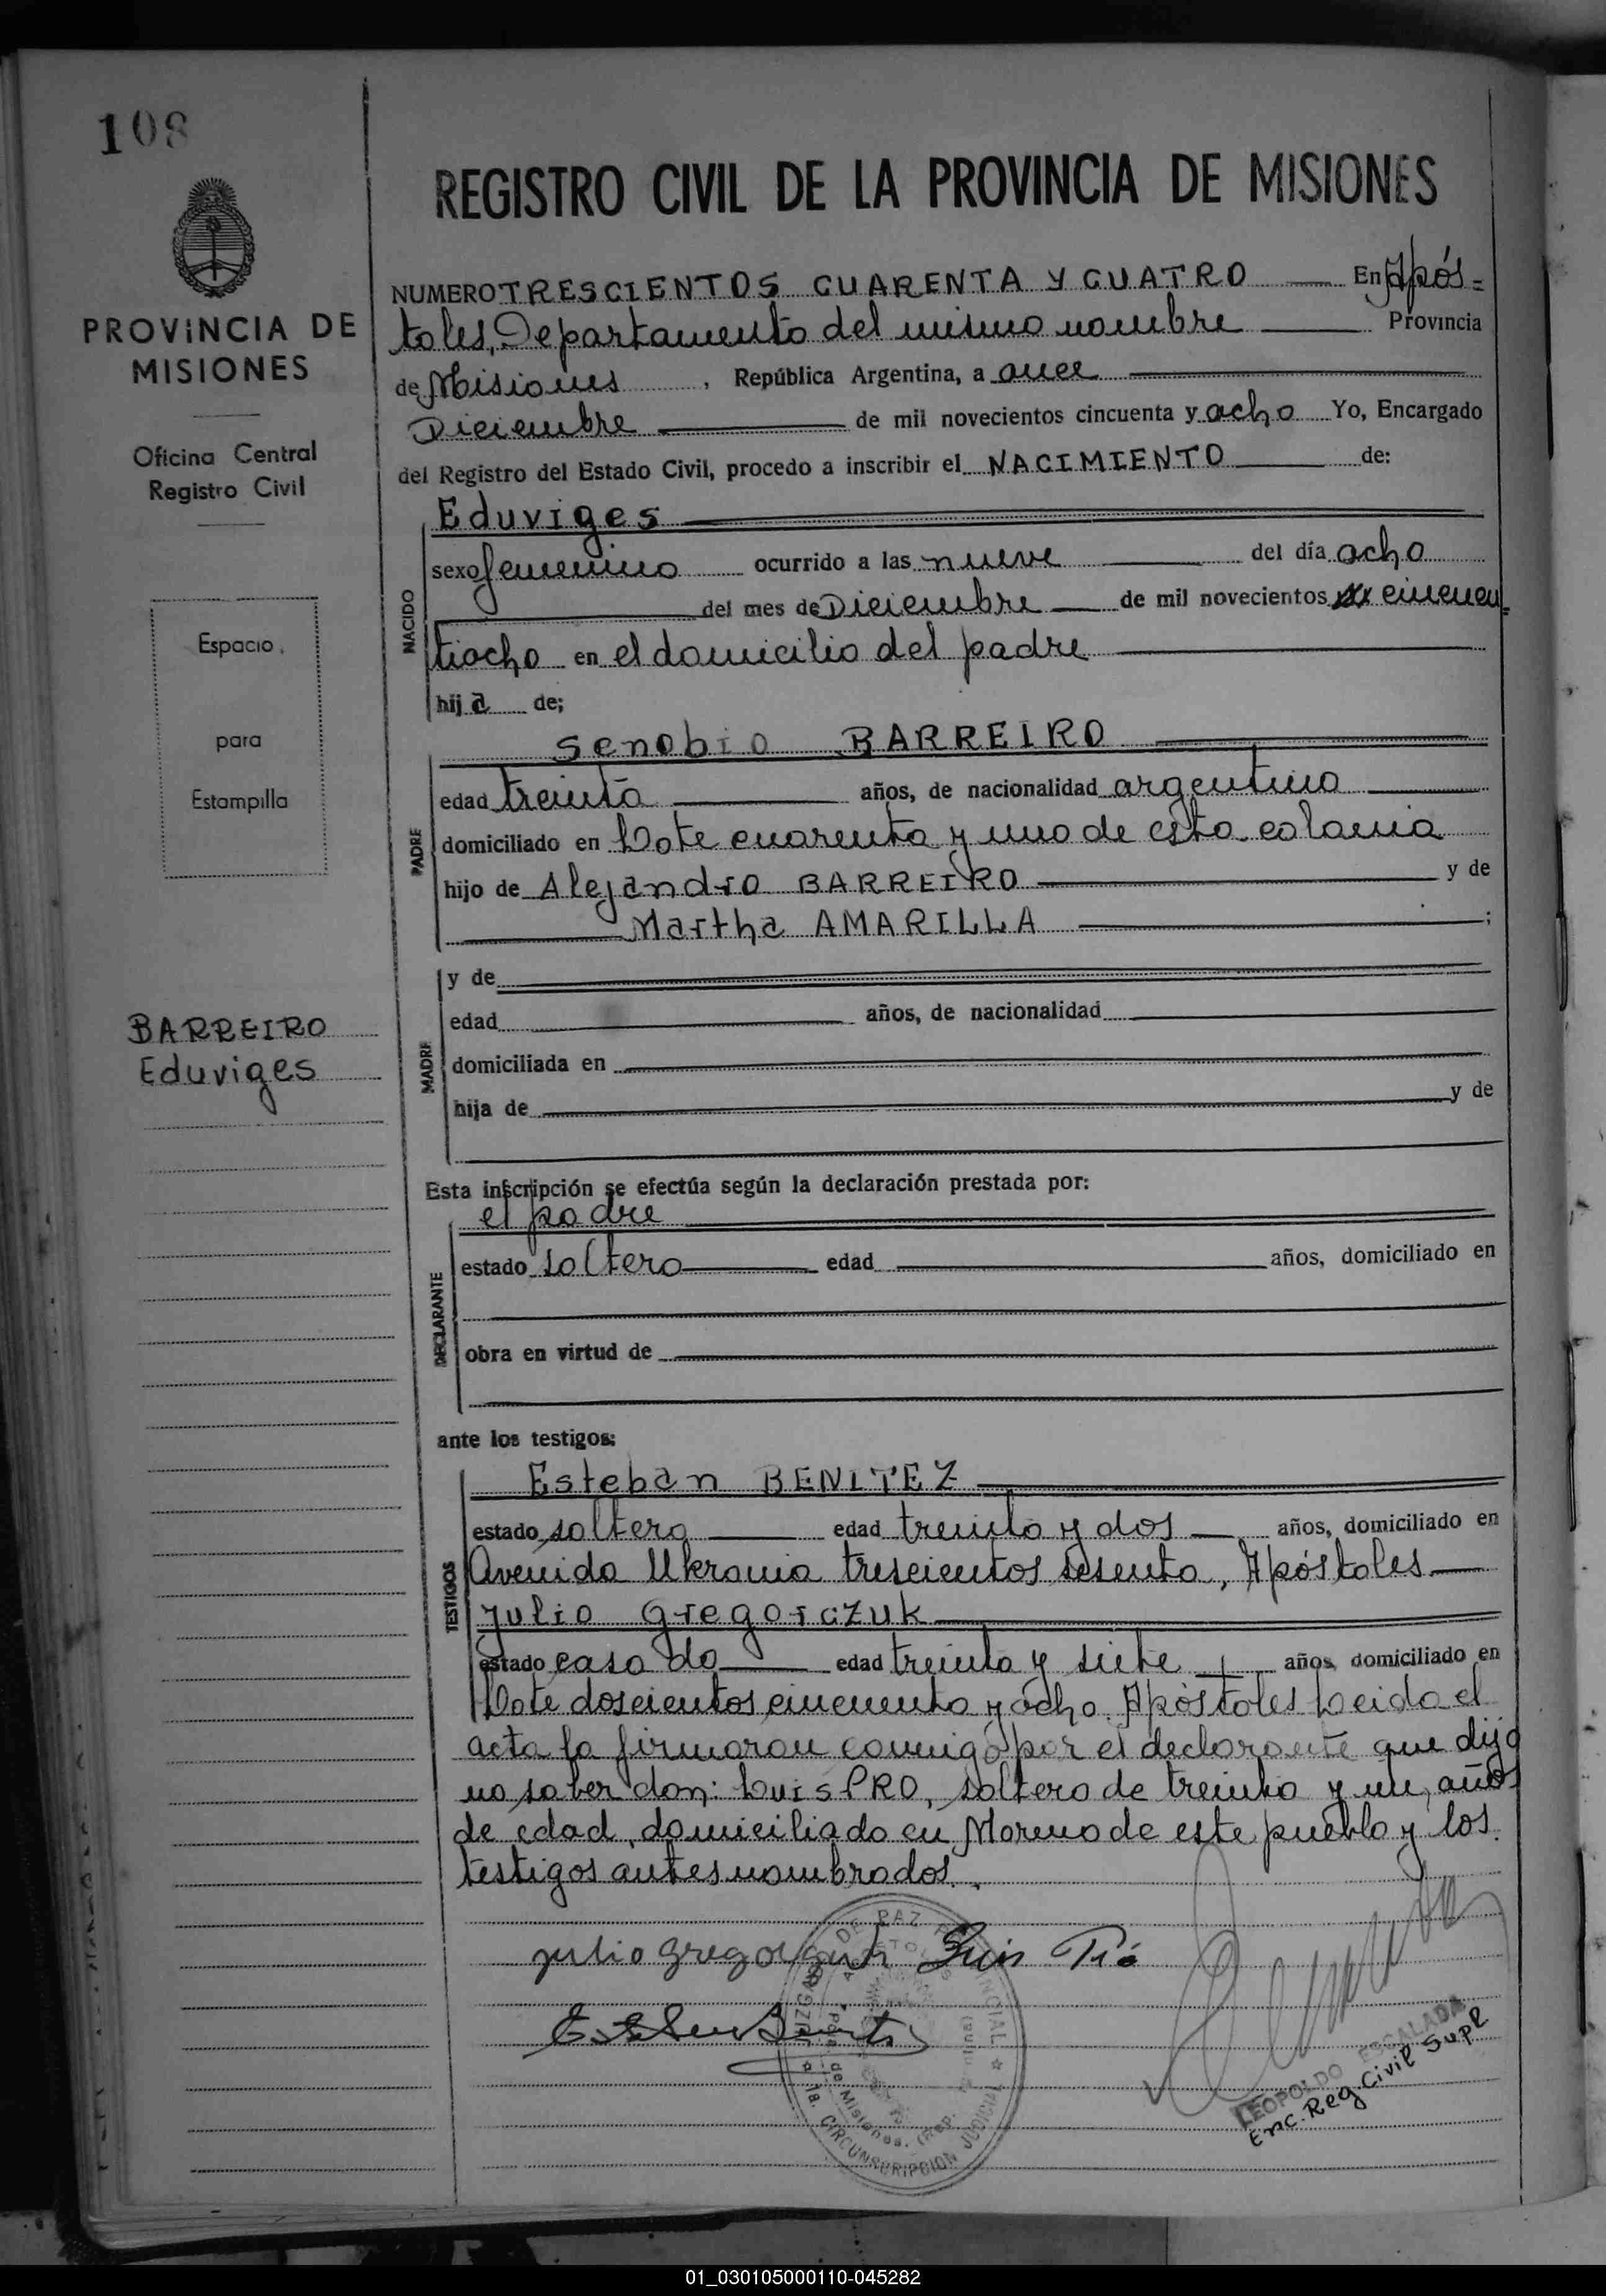 108
PROVINCIA DE
MISIONES
Oficina Central
Registro Civil
Espacio
para
Estampilla
BARREIRO
Eduviges
REGISTRO CIVIL DE LA PROVINCIA DE MISIONES
NUMERO TRESCIENTOS CUARENTA Y CUATRO En Após=
toles, Departamento del mismo nombre Provincia
de Misiones, República Argentina, a once
Diciembre de mil novecientos cincuenta y ocho Yo, Encargado
del Registro del Estado Civil, procedo a inscribir el NACIMIENTO de:
NACIDO
Eduviges
sexo femenino ocurrido a las nueve del día ocho
del mes de Diciembre de mil novecientos cincuen=
tiocho en el domicilio del padre
hija de;
PADRE
Senobio BARREIRO
edad treinta años, de nacionalidad argentino
domiciliado en Lote cuarenta y uno de esta colonia
hijo de Alejandro BARREIRO y de
Martha AMARILLA ;
MADRE
y de
edad años, de nacionalidad
domiciliada en
hija de y de
Esta inscripción se efectúa según la declaración prestada por:
DECLARANTE
el padre
estado soltero edad años, domiciliado en
obra en virtud de
ante los testigos:
TESTIGOS
Esteban BENITEZ
estado soltero edad treinta y dos años, domiciliado en
Avenida Ukrania trescientos sesenta, Apóstoles
Julio Gregorczuk
estado casado edad treinta y siete años, domiciliado en
Lote doscientos cincuenta y ocho. Apóstoles Leida el
acta la firmaron conmigo por el declarante que dijo
no saber don: Luis PRO, soltero de treinta y un, años
de edad, domiciliado en Moreno de este pueblo y los
testigos antes nombrados.
Julio Gregorczuk Luis Pró
JUZGADO DE PAZ
Pcia. de Misiones. (Rep.
1a. CIRCUNSCRIPCION JUDICIAL
LEOPOLDO ESCALADA
Enc. Reg. Civil Supl
01_030105000110-045282